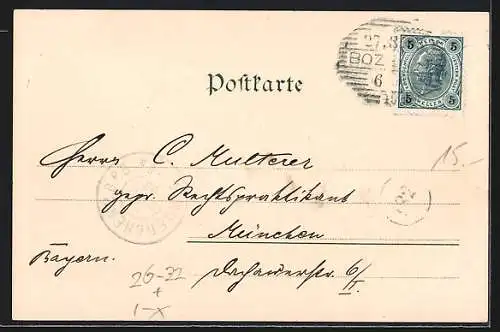 27.8
BOZ
6
5 5
5 5
Postkarte
15.-
Herrn C. Multerer
gepr. Rechtspraktikant
München
Bayern.
Dachauerstr. 6/I.
26-32
+
1-X